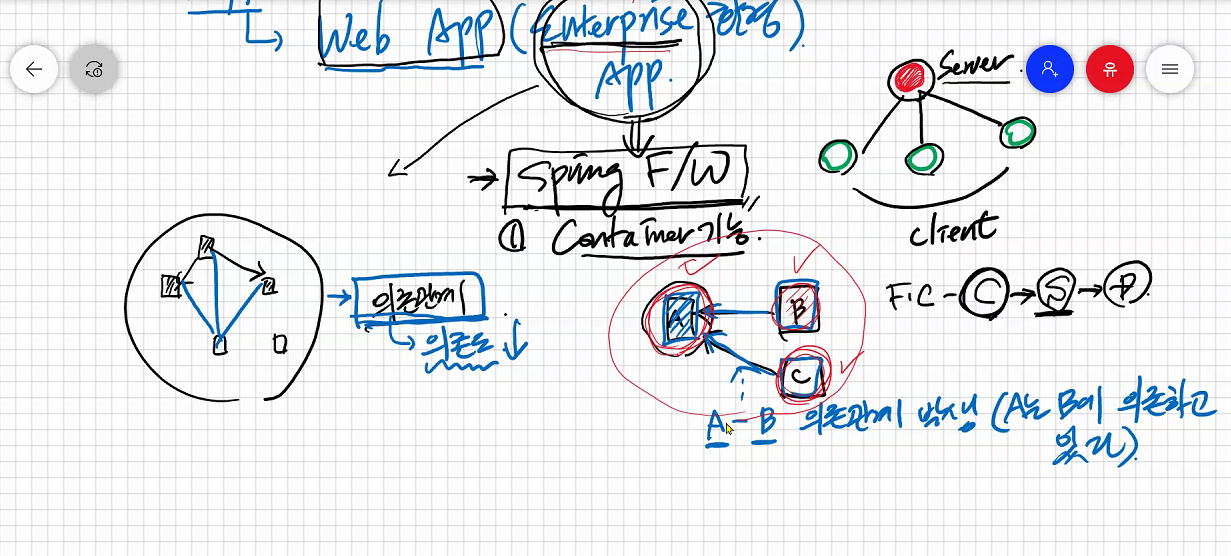 Web App (Enterprise 환경).
App.
Server
→ Spring F/W
① Container 기능.
client
의존관계
↳ 의존도 ↓
A
B
C
F.C - C → S → P
A - B 의존관계 발생 (A는 B에 의존하고
있다).